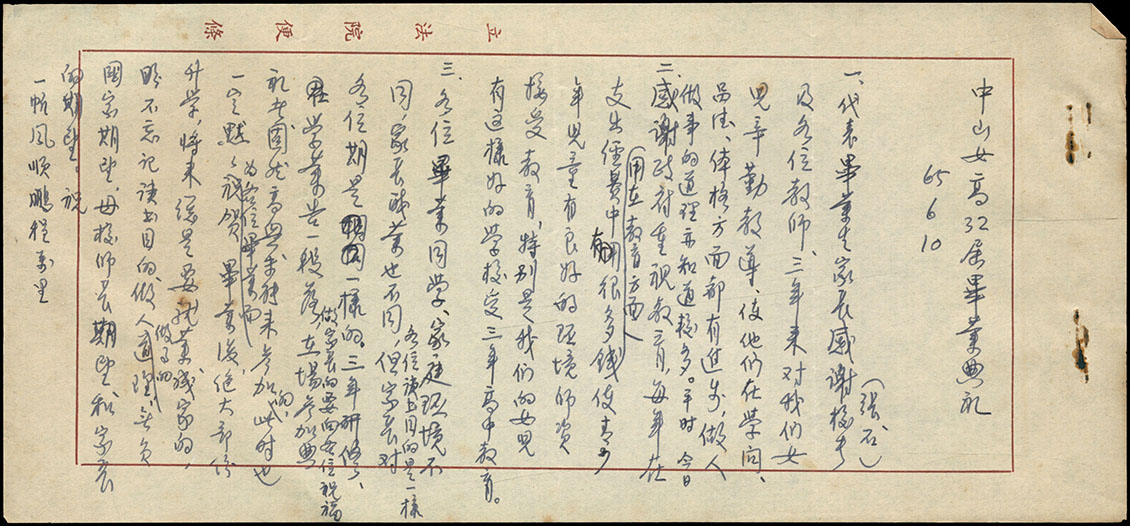 立法院便條
中山女高32屆畢業典禮
65
6
10
一、代表畢業生家長感謝校長
及各位教師、三年來對我們女
兒辛勤教導、使他們在學問、
品德、体格方面都有進步，做人
做事的道理亦知道極多。平時今日
二、感謝政府重視教育，每年在
支出經費中有很多錢使青少
（用在教育方面）
年兒童有良好的環境師資
接受教育，特别是我們的女兒
有這樣好的學校受三年高中教育。
三、各位畢業同學、家庭環境不
同，家長職業也不同，但家長對
各位讀書目的是一樣
各位期是一樣的。三年研修了、
在學業告一段落，立場參加典
做家長的要向各位祝福
禮者固然高興，未能來參加的，此時也
一定默默祝賀畢業後，絕大部份
為各位畢業而
升學，將來還是要就業、成家的，
盼不忘記讀書目的，做人道理，無負
做事的
國家期望，母校師長期望和家長
的期望。祝
一帆風順鵬程萬里